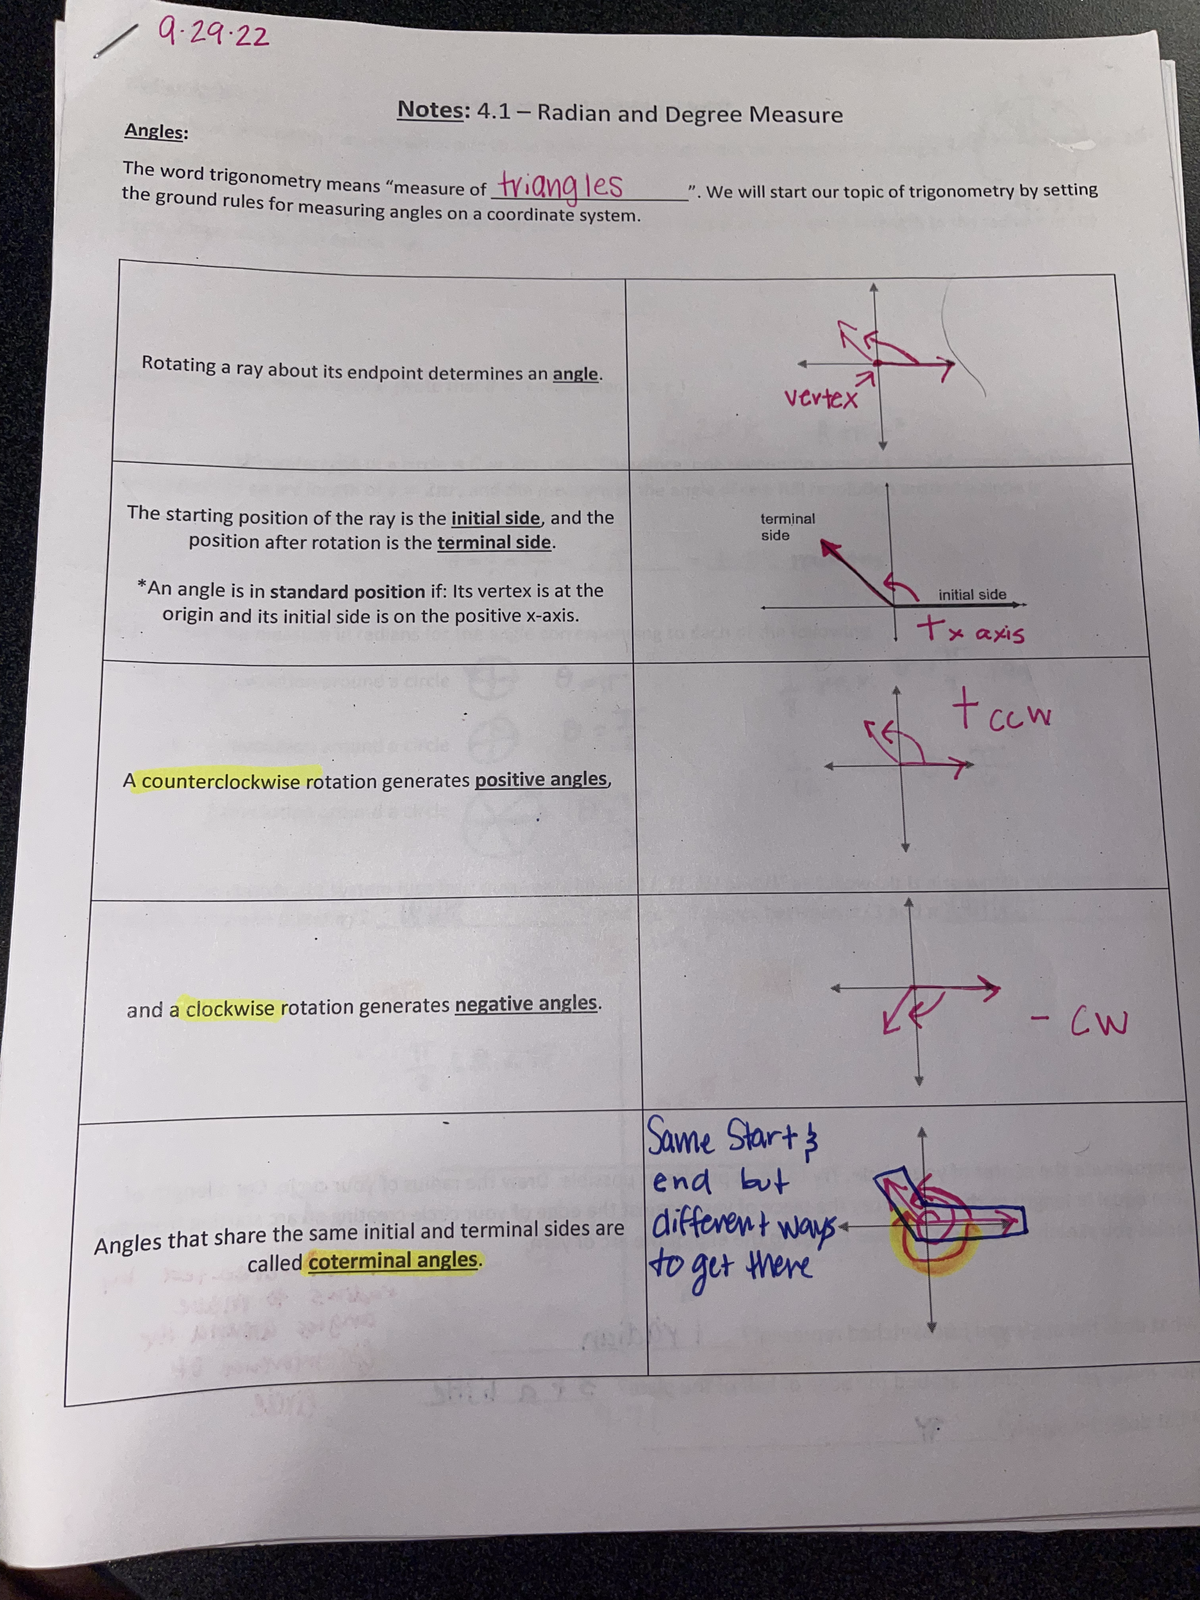 9.29.22
Notes: 4.1 – Radian and Degree Measure
Angles:
The word trigonometry means "measure of triangles". We will start our topic of trigonometry by setting
the ground rules for measuring angles on a coordinate system.
Rotating a ray about its endpoint determines an angle.
vertex
The starting position of the ray is the initial side, and the
position after rotation is the terminal side.
*An angle is in standard position if: Its vertex is at the
origin and its initial side is on the positive x-axis.
terminal
side
initial side
+ x axis
A counterclockwise rotation generates positive angles,
+ ccw
and a clockwise rotation generates negative angles.
- CW
Angles that share the same initial and terminal sides are
called coterminal angles.
Same Start &
end but
different ways
to get there